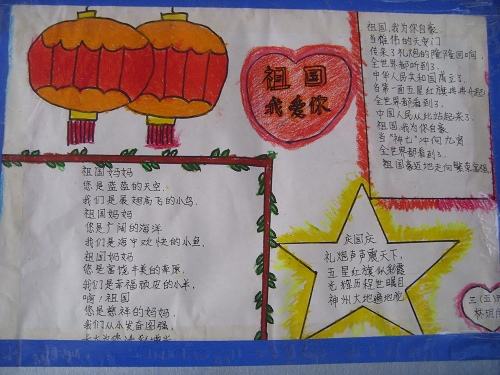 祖国
我爱你
祖国,我为你自豪.
当雄伟的天安门
传来了礼炮的隆隆回响,
全世界都听到了.
中华人民共和国成立了.
当第一面五星红旗冉冉升起,
全世界都看到了.
中国人民从此站起来了.
祖国,我为你自豪.
当"神七"冲向九霄
全世界都看到了.
祖国 地走向繁荣富强
祖国妈妈
您是蓝蓝的天空.
我们是展翅高飞的小鸟.
祖国妈妈
您是广阔的海洋
我们是海中欢快的小鱼.
祖国妈妈
您是富饶丰美的草原,
我们是幸福顽皮的小羊,
啊!祖国
您是慈祥的妈妈
我们从小发奋图强,
庆国庆
礼炮声声震天下,
五星红旗似彩霞
光辉历程世瞩目
神州大地遍地花
三(五)
林